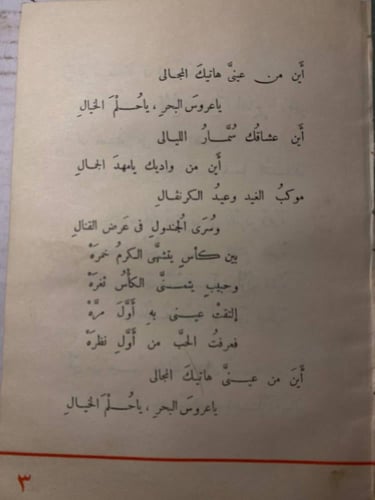 أَين من عينىَّ هاتيكَ المجالى
ياعروسَ البحرِ ، ياحُلْمَ الخيالِ
أين عشاقك سُمَّارُ الليالى
أين من واديك يامهدَ الجمالِ
موكبُ الغيد وعيدُ الكرنفالِ
وسُرَى الجُندولِ فى عَرض القنالِ
بين كأسٍ يتشهَّى الكرمُ خمرَهْ
وحبيبٍ يتمنَّى الكأسُ ثغرَهْ
إلتقتْ عينى بهِ أَوَّلَ مرَّهْ
فعرفتُ الحبَّ من أَوَّلِ نظرَهْ
أينَ من عينىَّ هاتيكَ المجالى
ياعروسَ البحرِ ، ياحُلْمَ الخيالِ
٣